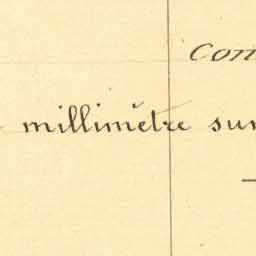 Con
millimètre sur